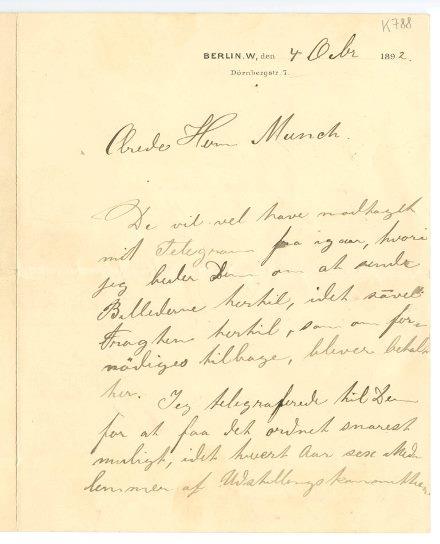 K788
BERLIN.W., den 4 Octbr 1892.
Dörnbergstr. 7.
Ærede Herr Munch.
De vil vel have modtaget
mit Telegram fra igaar, hvori
jeg beder Dem om at sende
Billederne hertil, idet såvel
Fragten hertil, som om for-
nødiges tilbage, bliver betalt
her. Jeg telegraferede til Dem
for at faa det ordnet snarest
muligt, idet hvert Aar sex Med-
lemmer af Udstillings